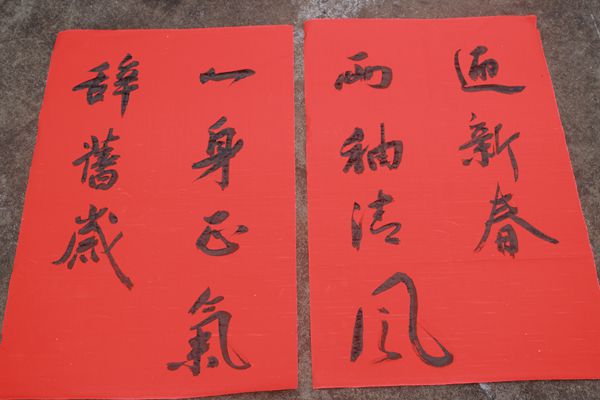 迎新春
两袖清风
一身正氣
辞舊歲